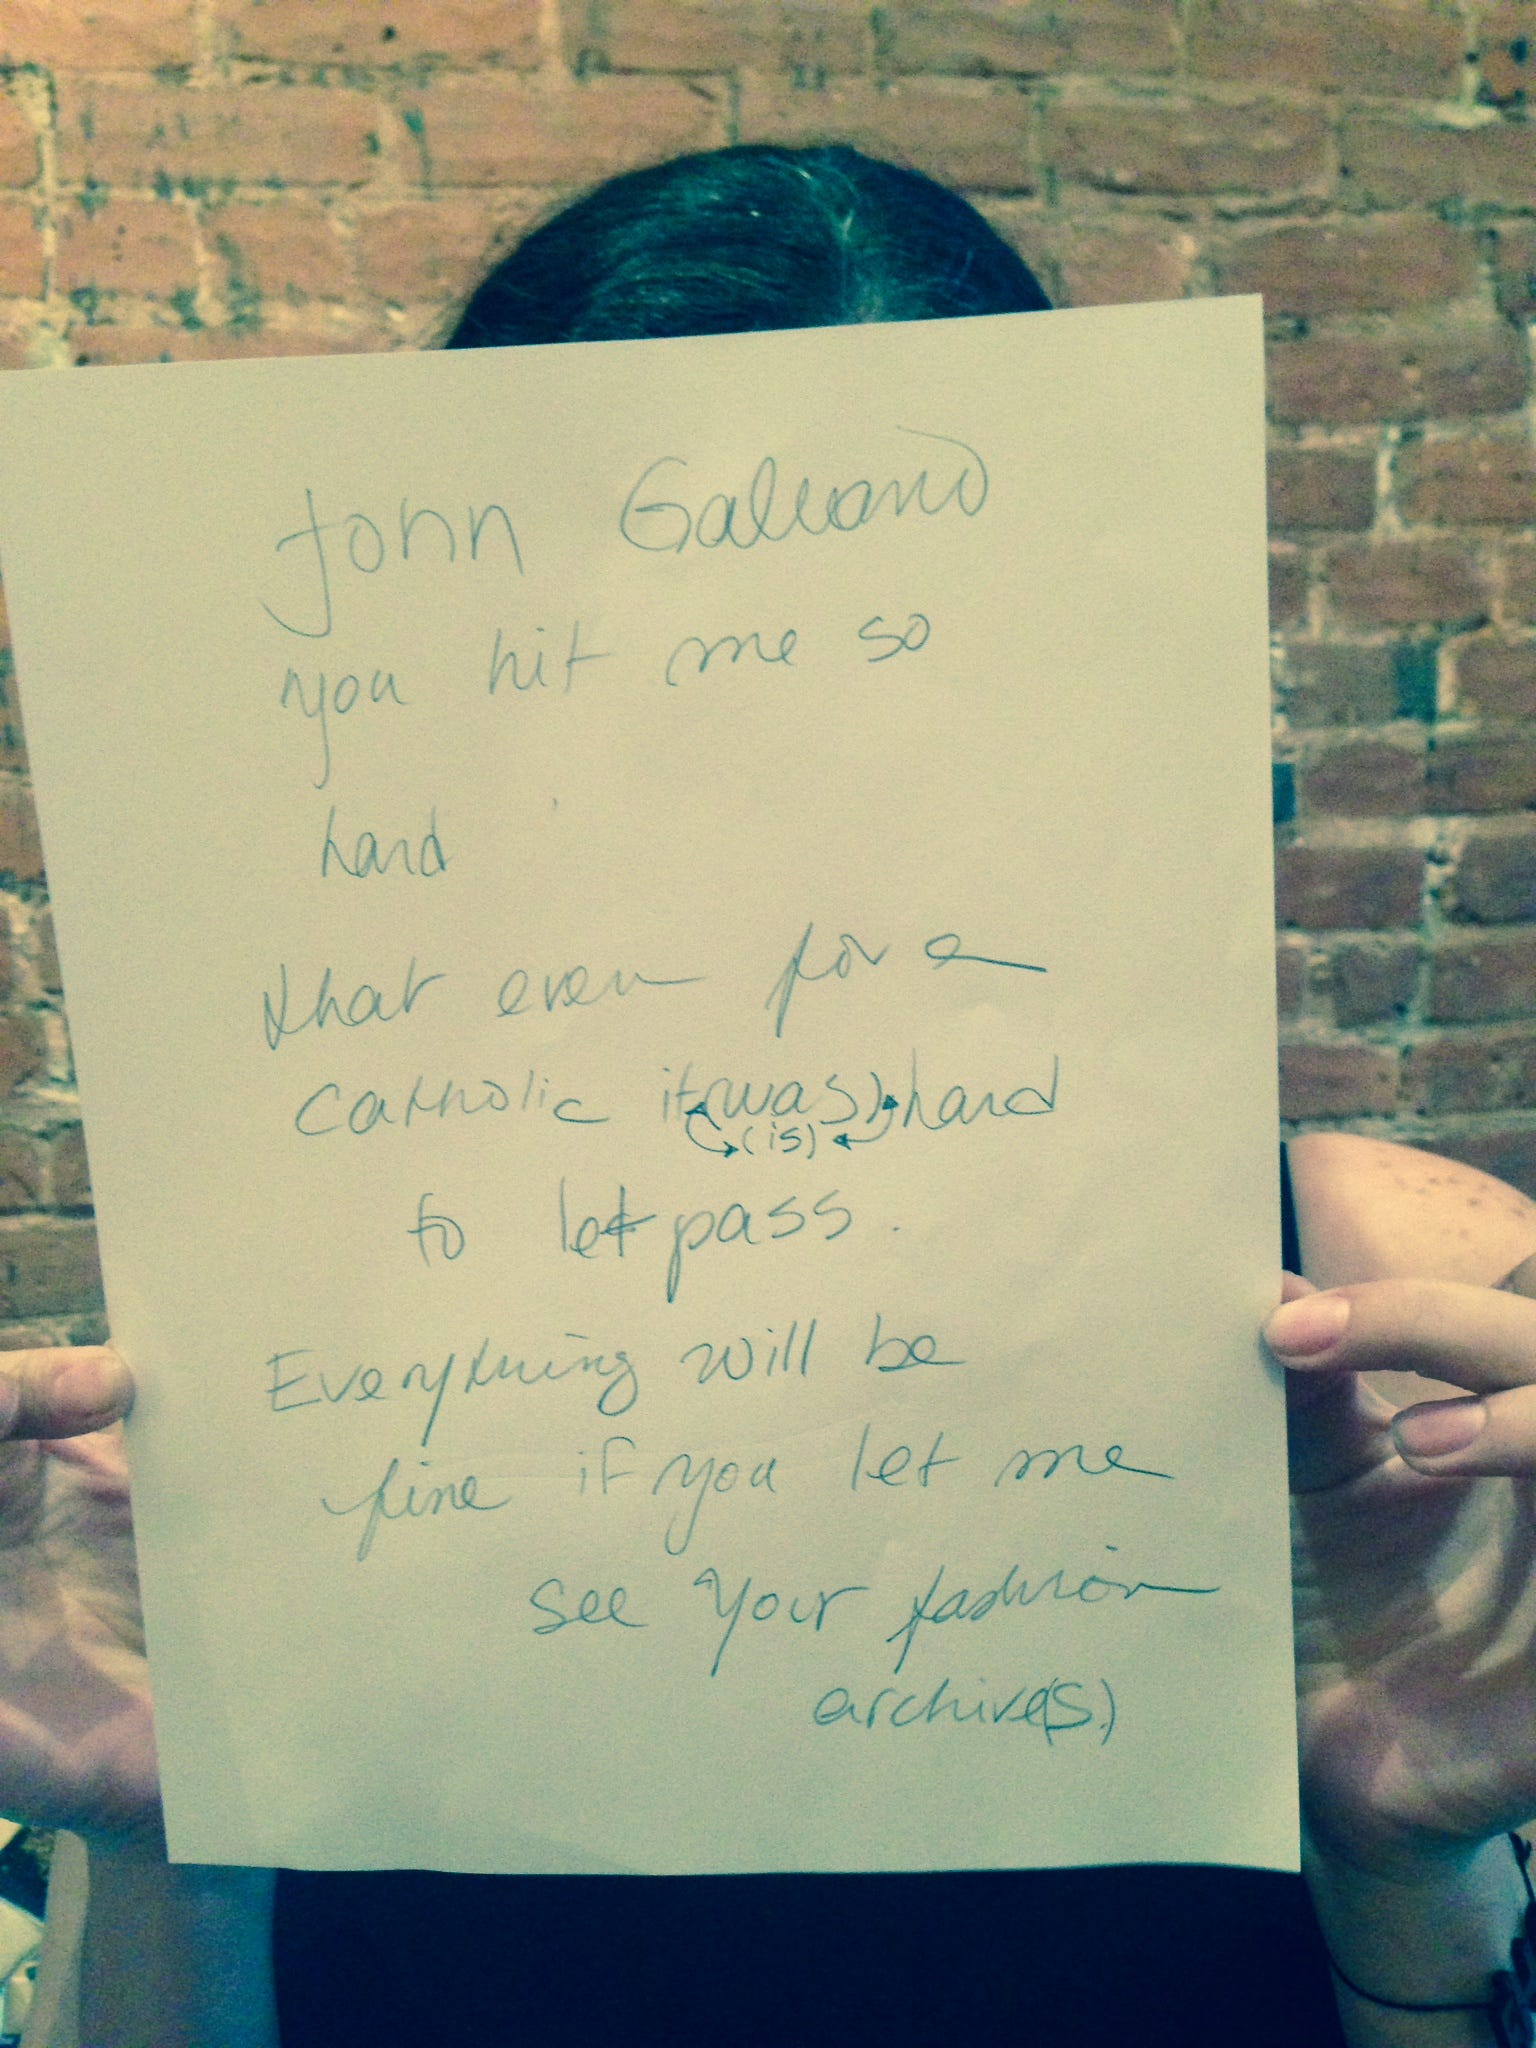 John Galliano
you hit me so
hard
that even for a
catholic it (was) hard
(is)
to let pass.
Everything will be
fine if you let me
see your fashion
archive(s.)